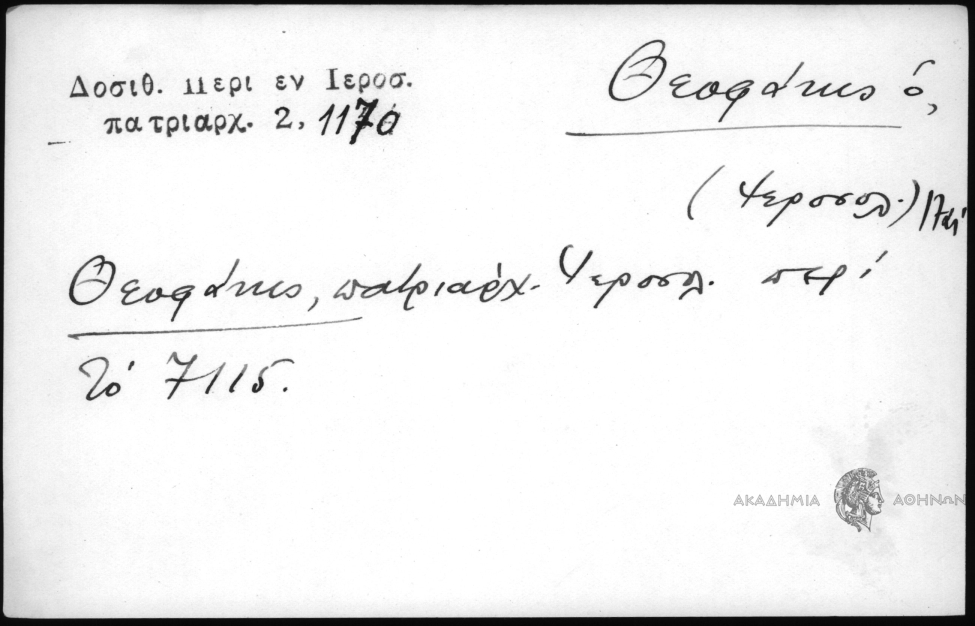 Δοσιθ. Περι εν Ιεροσ.
πατριαρχ. 2, 1170
Θεοφάνης ὁ,
(Ἱεροσολ.) 17αι
Θεοφάνης, πατριάρχ. Ἱεροσολ. περί
τό 7115.
ΑΚΑΔΗΜΙΑ ΑΘΗΝΩΝ